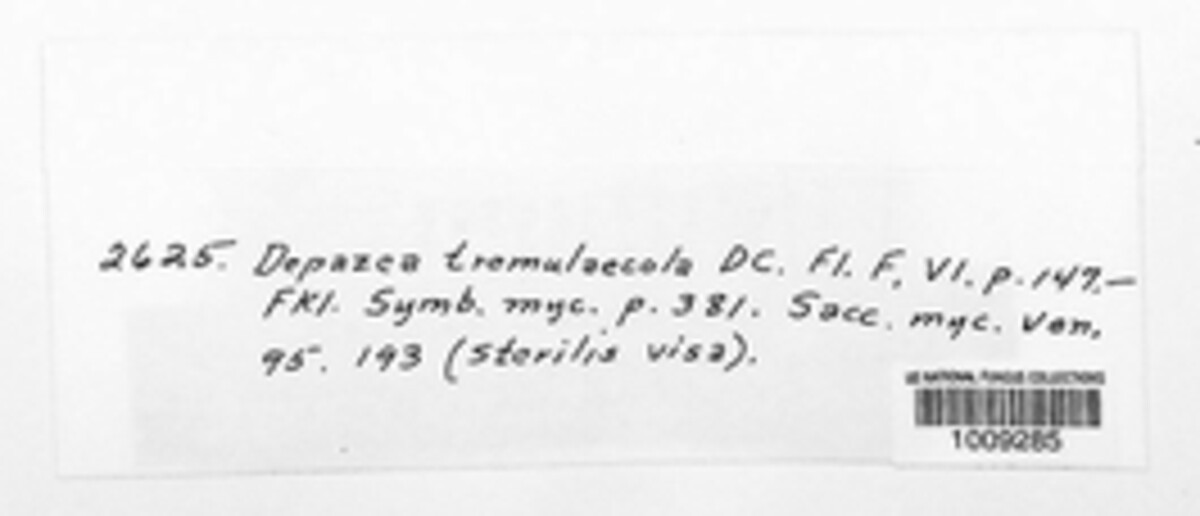 2625. Depazea tremulaecola DC. Fl. F. VI. p. 147.—
FKl. Symb. myc. p. 381. Sacc. myc. Ven.
95. 193 (sterilis visa).
US NATIONAL FUNGUS COLLECTIONS
1009285